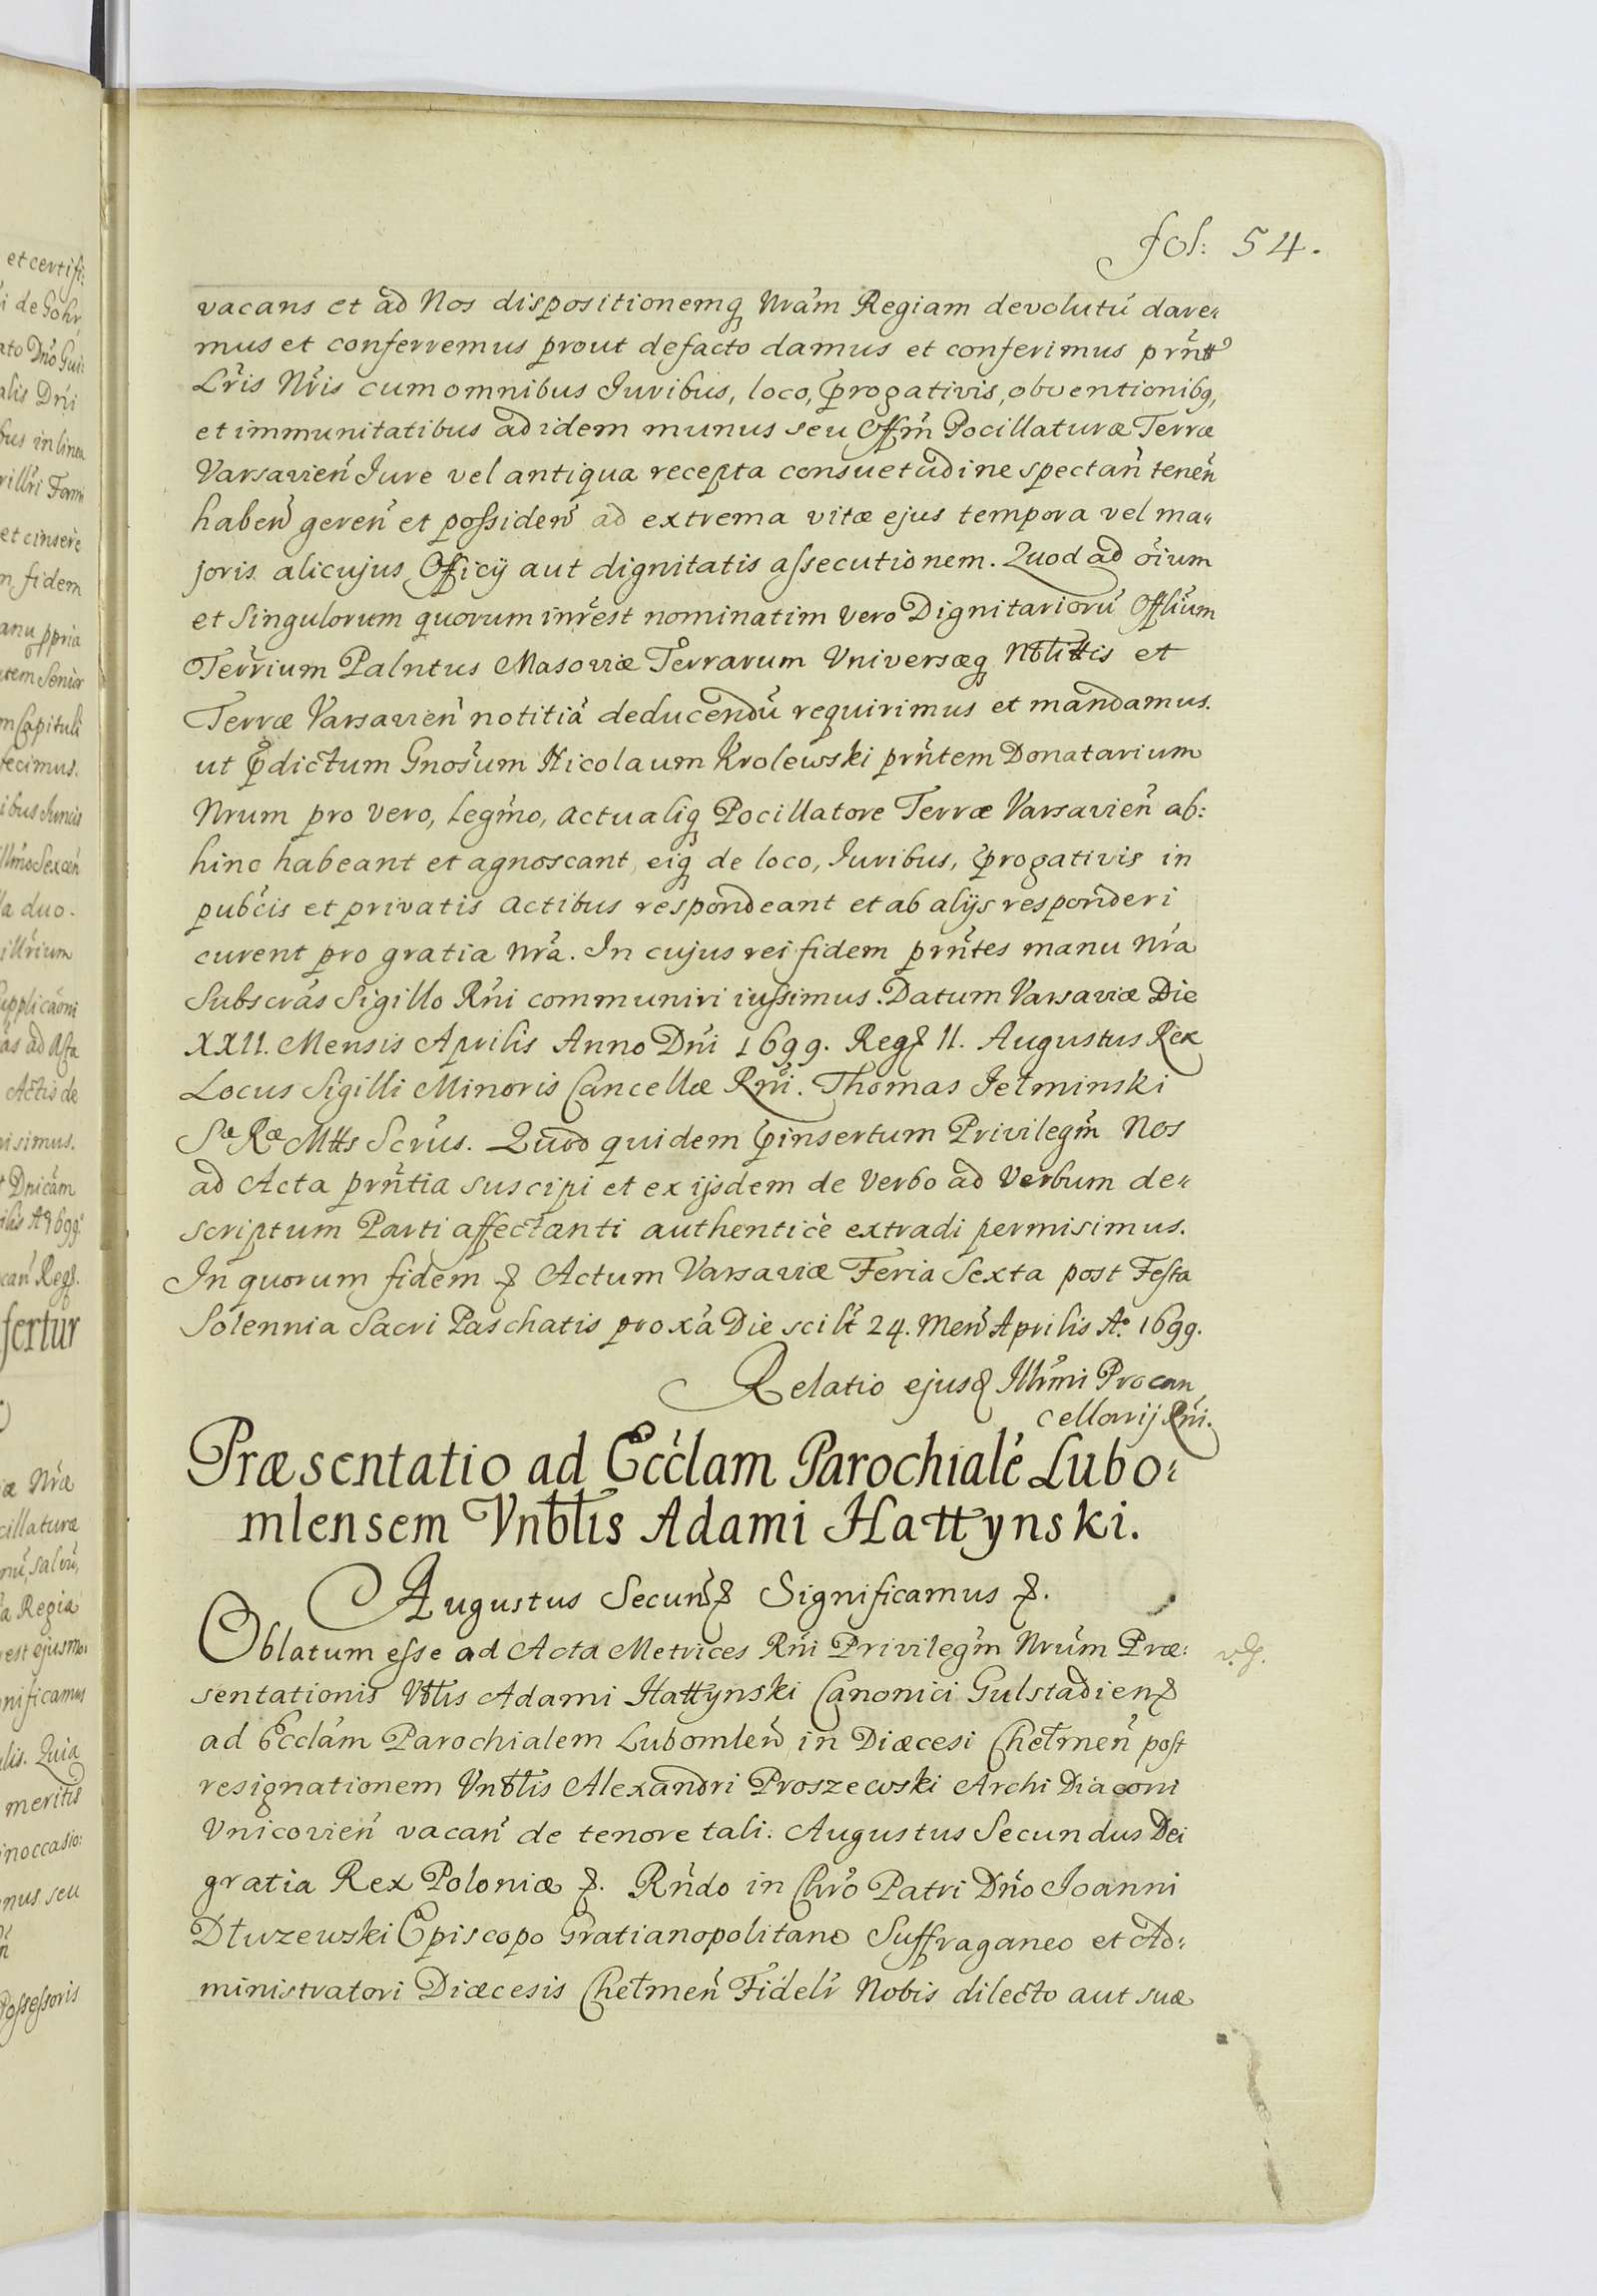 fol: 54.
vacans et ad Nos dispositionemq Nram Regiam devolutu dare-
mus et conferremus prout defacto damus et conferimus prntt
Lris Nris cum omnibus Iuribus, loco, progativis, obventionibq,
et immunitatibus ad idem munus seu Offm Pocillaturæ Terræ
Varsavien Iure vel antiqua recepta consuetudine spectan tenen
haben geren et possiden ad extrema vitæ ejus tempora vel ma-
joris alicujus Officij aut dignitatis assecutionem. Quod ad oium
et Singulorum quorum inrest nominatim vero Dignitarioru Offlium
Terrium Palntus Masoviæ Terrarum Universæq Nblittis et
Terræ Varsavien notitia deducendu requirimus et mandamus.
ut pdictum Gnosum Nicolaum Krolewski prntem Donatarium
Nrum pro vero, Legmo, actualiq Pocillatore Terræ Varsavien ab:
hinc habeant et agnoscant, eiq de loco, Iuribus, progativis in
pubcis et privatis actibus respondeant et ab alijs responderi
curent pro gratia nra. In cujus rei fidem prntes manu Nra
Subscras Sigillo Rni communiri iussimus. Datum Varsaviæ Die
XXII. Mensis Aprilis Anno Dni 1699. Reg II. Augustus Rex
Locus Sigilli Minoris Cancellæ Rni. Thomas Jełminski
Sæ Ræ Mtts Scrus. Quod quidem pinsertum Privilegm Nos
ad Acta prntia suscipi et ex ijsdem de Verbo ad Verbum de-
scriptum Parti affectanti authenticè extradi permisimus.
In quorum fidem & Actum Varsaviæ Feria Sexta post Festa
Solennia Sacri Paschatis proxa Die scilt 24. Men Aprilis Ao. 1699.
Relatio ejusd Illmi Procan
cellarij Rni.
Præsentatio ad Ecclam Parochiale Lubo-
mlensem Vnbtlis Adami Hattynski.
Augustus Secund Significamus &.
Oblatum esse ad Acta Metrices Rni Privilegm Nrum Præ:
sentationis Vblis Adami Hattynski Canonici Gulstadien
ad Ecclam Parochialem Lubomlen in Diæcesi Chełmen post
resignationem Vnbtlis Alexandri Proszewski Archi Diaconi
Vnicovien vacan de tenore tali. Augustus Secundus Dei
gratia Rex Poloniæ &. Rndo in Chro Patri Dno Ioanni
Dłuzewski Episcopo Gratianopolitano Suffraganeo et Ad-
ministratori Diæcesis Chełmen Fideli Nobis dilecto aut suæ